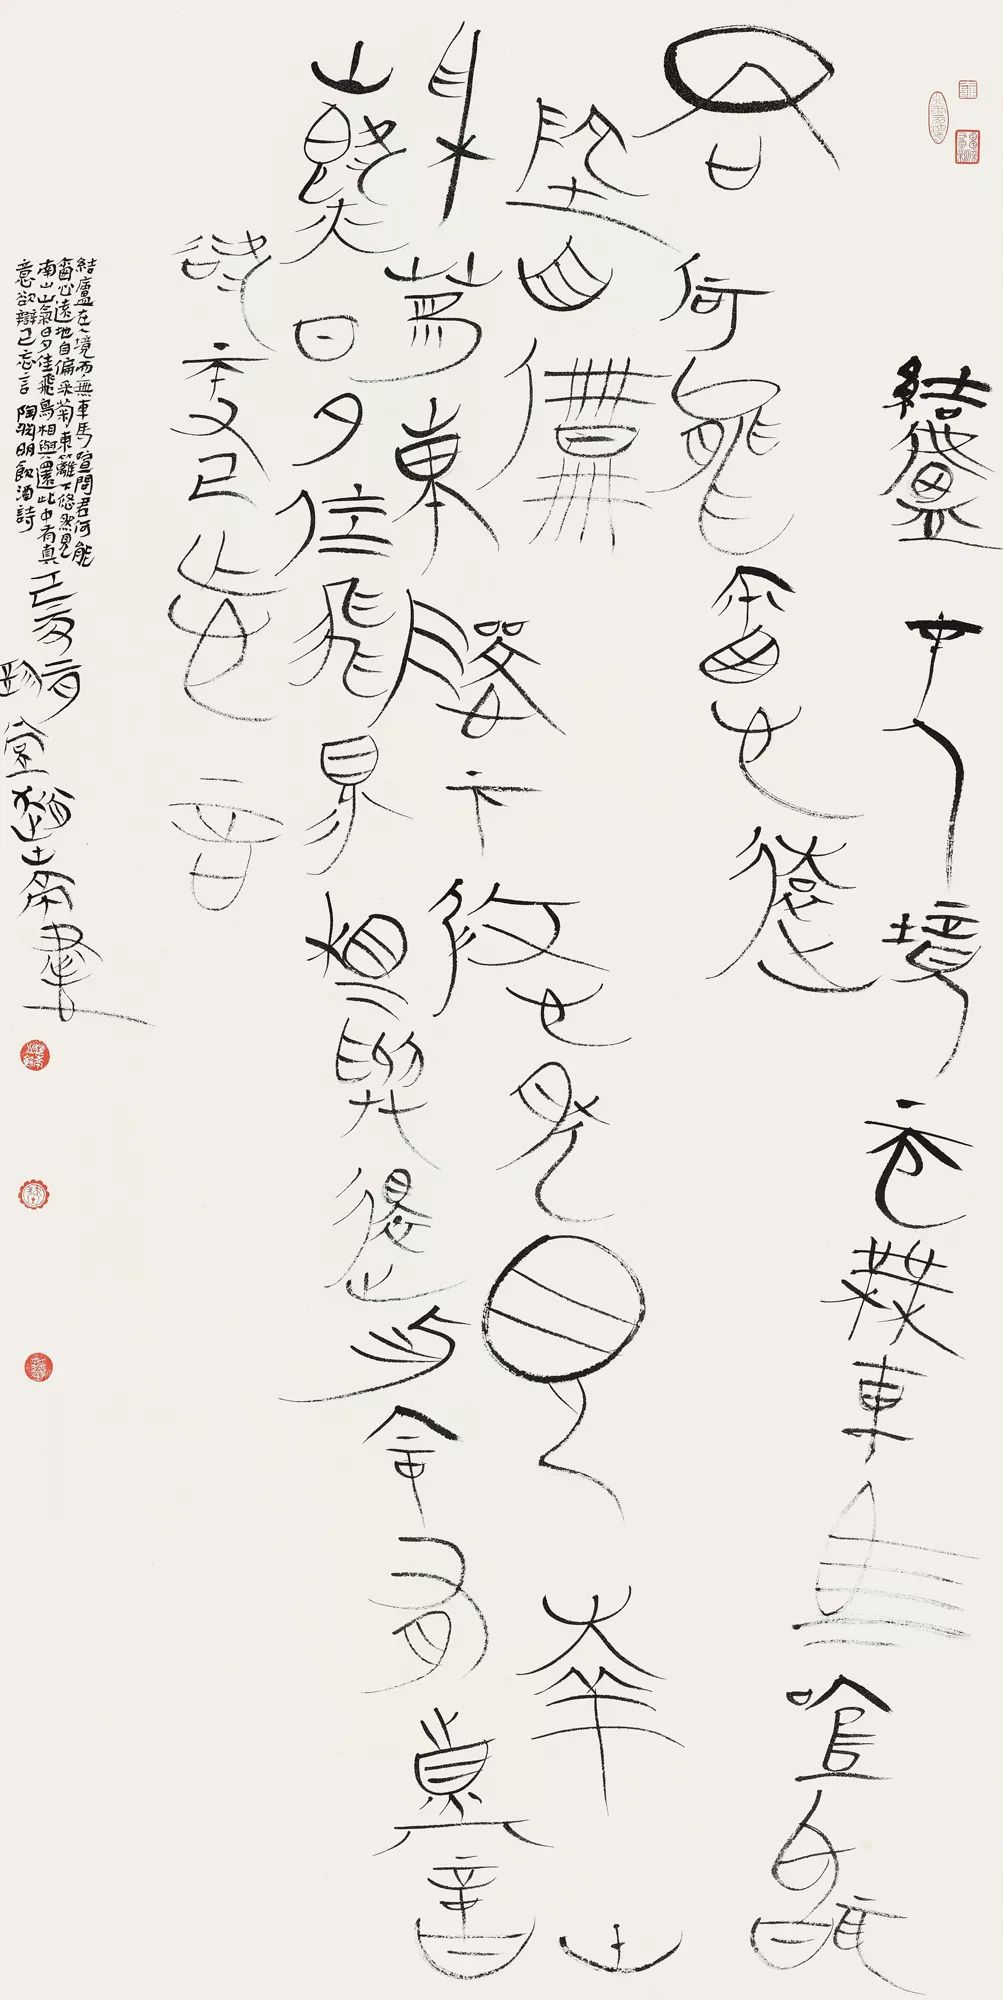 結廬在人境而無車馬喧問
君何能爾心遠
地自偏
采菊東籬下悠然見南山
山氣日夕佳飛鳥相與還此中有真意
欲辯已忘言
結廬在人境而無車馬喧問君何能
爾心遠地自偏采菊東籬下悠然見
南山山氣日夕佳飛鳥相與還此中有真
意欲辯已忘言 陶淵明飲酒詩
己亥
書